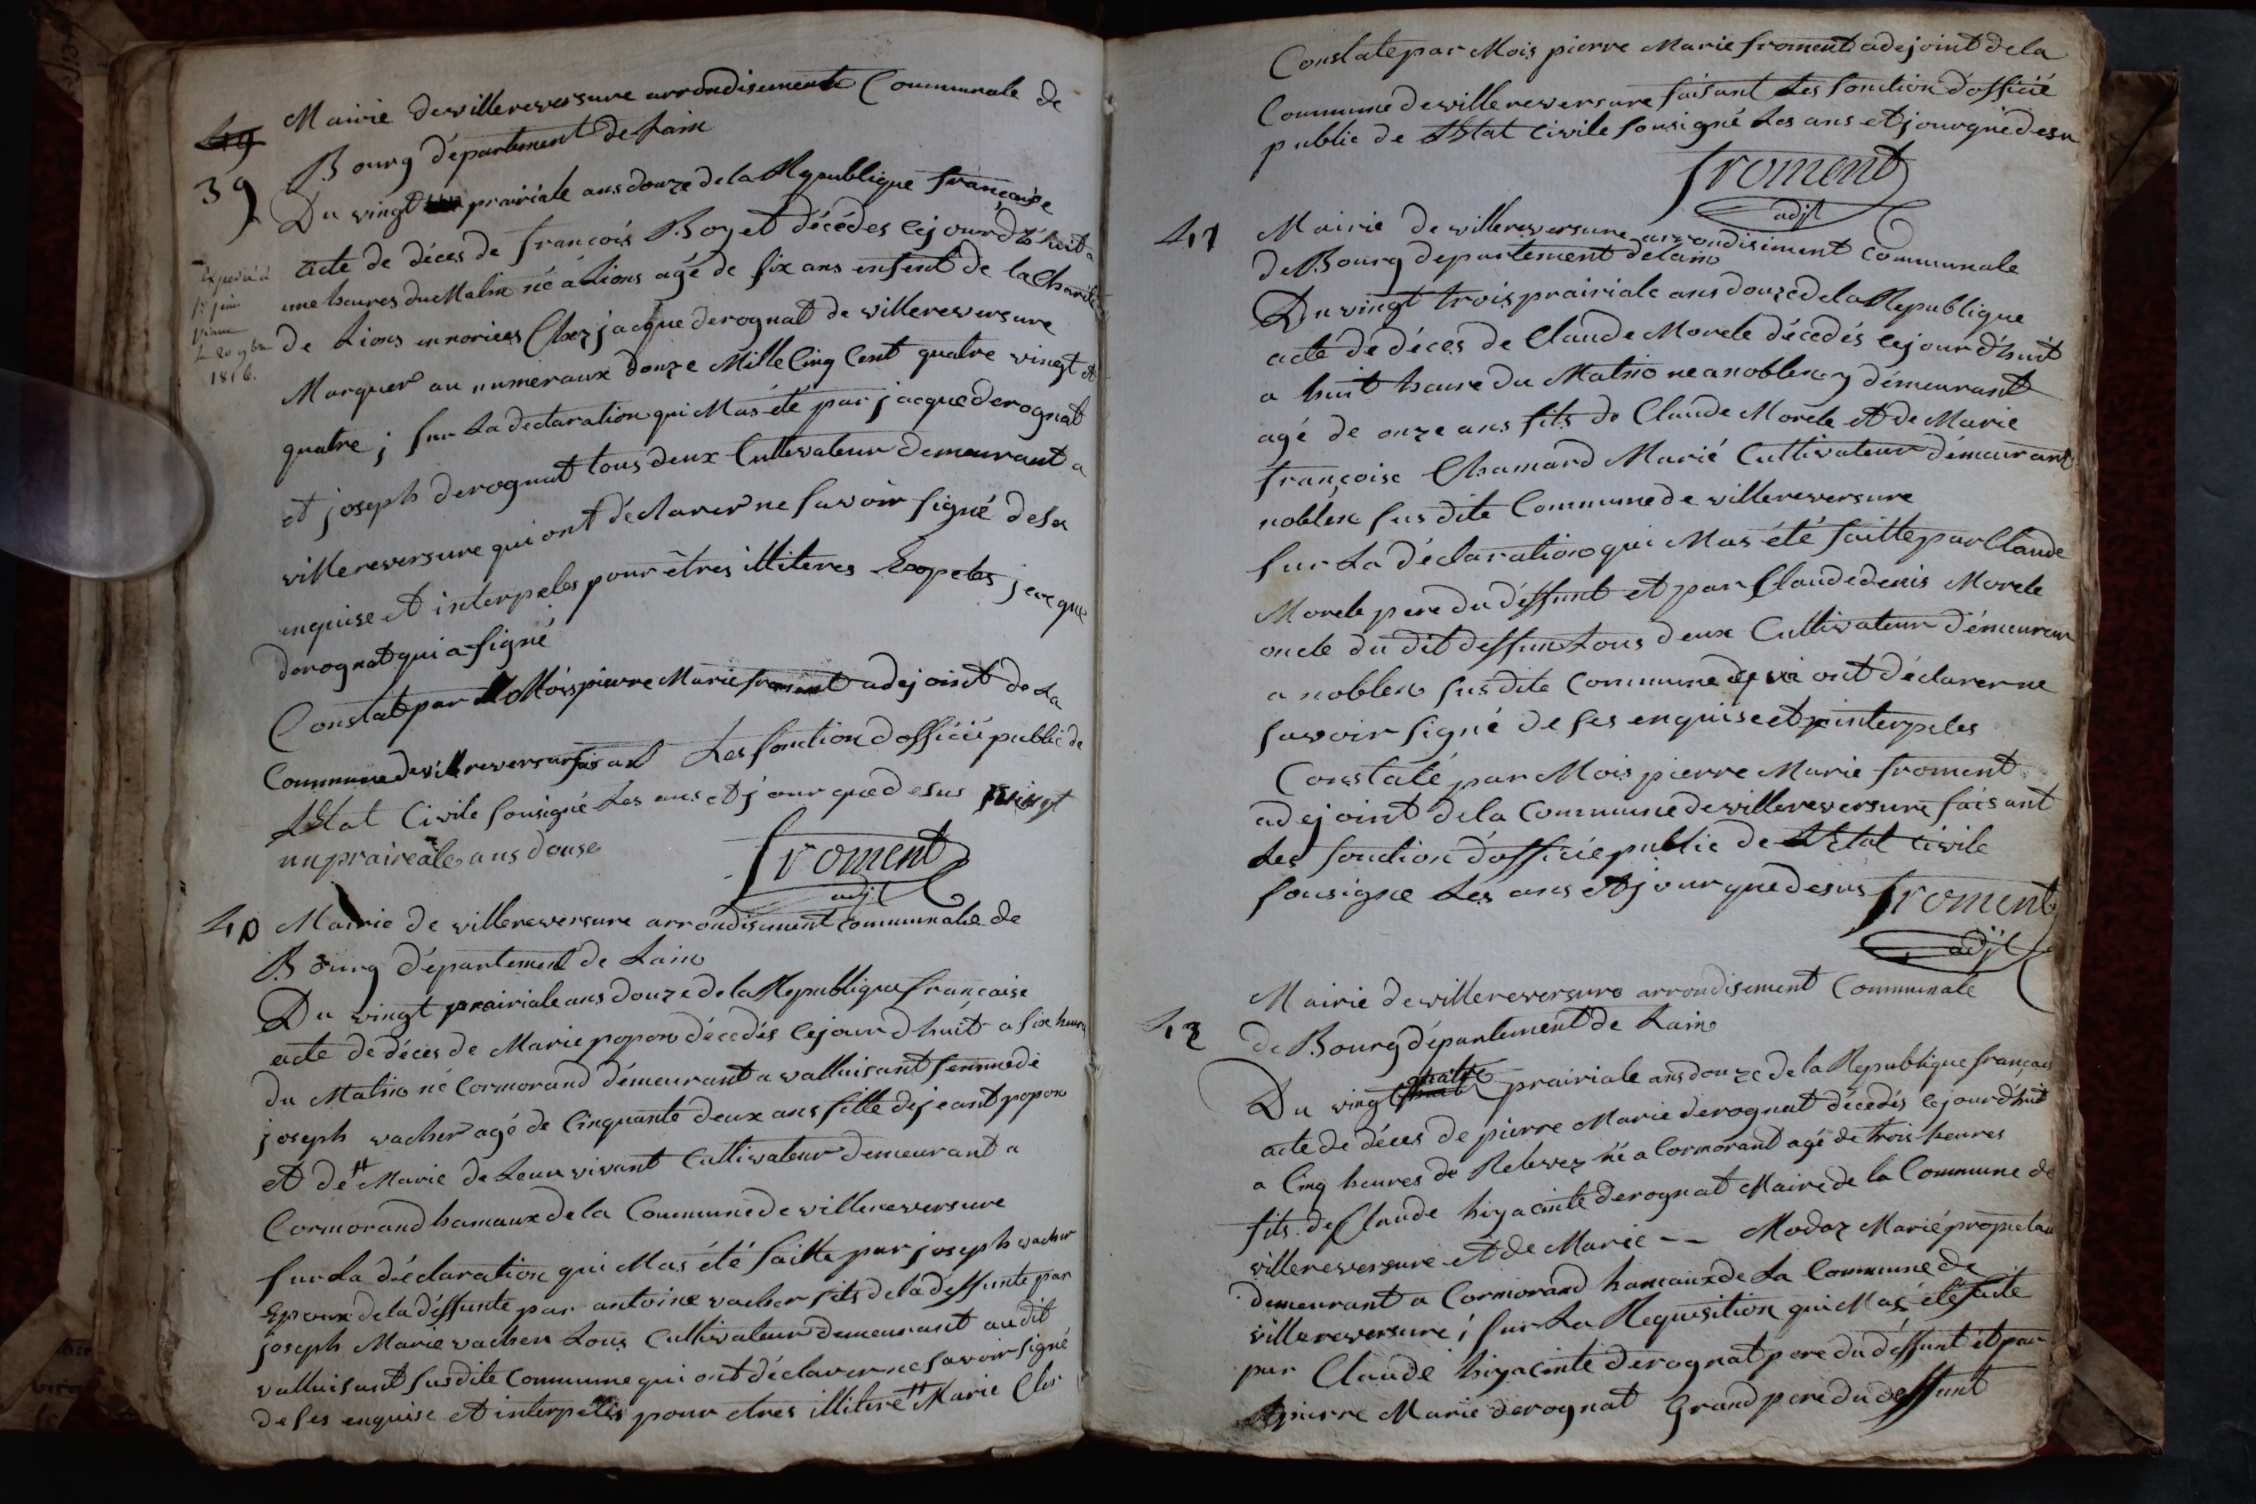 49
39
Mairie de villereversure arrondisement Communale de
Bourg département de Lain
Du vingt prairiale ans douze de la Republique française
acte de déces de françois Boyet décédes cejourd'huit a
une heures du Matin né a Lions agé de six ans enfent de la Charité
de Lions en norices Chez jacque derognat de villereversure
Marquer au numeraux douze Mille Cinq Cent quatre vingt et
quatre ; sur La declaration qui Mas été par jacque derognat
et joseph derognat tous deux Cultivateur demeurant a
villereversure qui ont déclarer ne savoir signé de sa
enquise et interpeles pour êtres illiteres Exepetes jacque
derognat qui a signé
Constate par Mois pierre Marie froment adejoint de La
Commune de villereversure faisant Les fonction d'officié public de
LEtat Civile sousigné Les ans et jour que desus vingt
un praireale ans douse
froment
adjt
1816.
40
Mairie de villereversure arrondisement communale de
Bourg département de Lain
Du vingt prairiale ans douze de la Republique française
acte de déces de Marie popon décedés cejourdhuit a six heures
du Matin né Cormorand démeurant a valluisant femme de
joseph vacher agé de Cinquante deux ans fille de jeant popon
et de Marie de Leur vivant Cultivateur demeurant a
Cormorand hamaux de la Commune de villereversure
sur La déclaration qui Mas été faitte par joseph vacher
Epoux de la déffunte par antoine vacher fils de la deffunte par
joseph Marie vacher tous Cultivateur demeurant au dit
valluisant susdite Commune qui ont déclarer ne savoir signé
de ses enquise et interpelés pour etres illiteré Marie
Constate par Mois pierre Marie froment adejoint de la
Commune de villereversure faisant Les fonction d'officié
public de LEtat Civile sousigné Les ans et jour que desu
froment
adjt
41
Mairie de villereversure arrondisiment Communale
de Bourg departement de lain
Du vingt trois prairiale ans douze de la Republique
acte de déces de Claude Morele décedés cejour d'huit
a huit heure du Matin ne a noblens y démeurant
agé de onze ans fils de Claude Morele et de Marie
françoise Chamard Marié Cultivateur démeurant
noblens sus dite Commune de villereversure
sur La déclaration qui Mas été faitte par Claude
Morele pere du déffunt et par Claude denis Morele
oncle du dit deffun tous deux Cultivateur démeurent
a noblens sus dite Commune qui ont déclarer ne
savoir signé de ses enquise et interpeles
Constaté par Mois pierre Marie froment
adejoint dela Commune de villereversure faisant
Les fonction d'officié public de LEtat Civile
sousigne Les ans et jour que desus froment
adjt
42
Mairie de villereversure arrondisement Communale
de Bourg département de Lain
Du vingt quatre prairiale ans douze de la Republique français
acte de déces de pierre Marie derognat décedés cejourd'huit
a Cinq heures de Relevez né a Cormorant agé de trois heures
fils de Claude hiyacinte derognat Maire de la Commune de
villereversure et de Marie -- Modaz Marié propietai
demeurant a Cormorand hamaux de La Commune de
villereversure ; sur La Requisition qui Mas été faite
par Claude hiyacinte derognat pere du déffunt et par
pierre Marie derognat Grand pere du deffunt